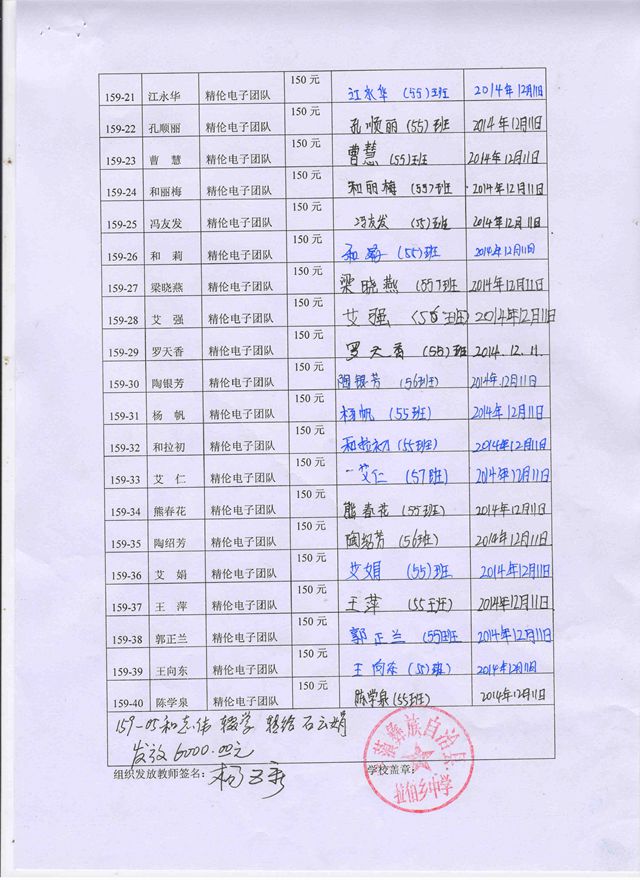 159-21 江永华 精伦电子团队 150 元 江永华 (55)班 2014年12月11日
159-22 孔顺丽 精伦电子团队 150 元 孔顺丽 (55)班 2014年12月11日
159-23 曹 慧 精伦电子团队 150 元 曹慧 (55)班 2014年12月11日
159-24 和丽梅 精伦电子团队 150 元 和丽梅 (55)班 2014年12月11日
159-25 冯友发 精伦电子团队 150 元 冯友发 (55)班 2014年12月11日
159-26 和 莉 精伦电子团队 150 元 和莉 (55)班 2014年12月11日
159-27 梁晓燕 精伦电子团队 150 元 梁晓燕 (55)班 2014年12月11日
159-28 艾 强 精伦电子团队 150 元 艾强 2014年12月11日
159-29 罗天香 精伦电子团队 150 元 罗天香 (55)班 2014.12.11.
159-30 陶银芳 精伦电子团队 150 元 陶银芳 (56班) 2014年12月11日
159-31 杨 帆 精伦电子团队 150 元 杨帆 (55班) 2014年12月11日
159-32 和拉初 精伦电子团队 150 元 和拉初 (55班) 2014年12月11日
159-33 艾 仁 精伦电子团队 150 元 艾仁 (57班) 2014年12月11日
159-34 熊春花 精伦电子团队 150 元 熊春花 (55班) 2014年12月11日
159-35 陶绍芳 精伦电子团队 150 元 陶绍芳 (56班) 2014年12月11日
159-36 艾 娟 精伦电子团队 150 元 艾娟 (55)班 2014年12月11日
159-37 王 萍 精伦电子团队 150 元 王萍 (55班) 2014年12月11日
159-38 郭正兰 精伦电子团队 150 元 郭正兰 (55班 2014年12月11日
159-39 王向东 精伦电子团队 150 元 王向东 2014年12月11日
159-40 陈学泉 精伦电子团队 150 元 陈学泉 (55班) 2014年12月11日
159-05和志伟 辍学 转给 石云娟
发放 6000.00元
组织发放教师签名: 学校盖章:
彝族自治县
拉伯乡中学